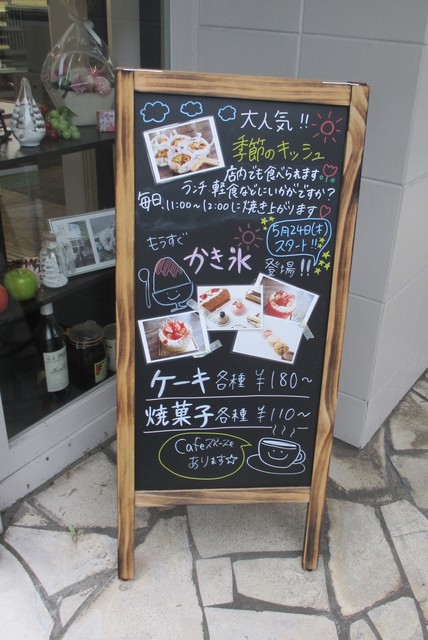 大人気!!
季節のキッシュ
店内でも食べられます。
ランチ 軽食などにいかがですか?
毎日、11:00~12:00に焼き上がります
5月24日(木)
スタート!!
もうすぐ
かき氷
登場!!
ケーキ各種 ¥180~
焼菓子各種 ¥110~
Cafeスペースも
あります☆